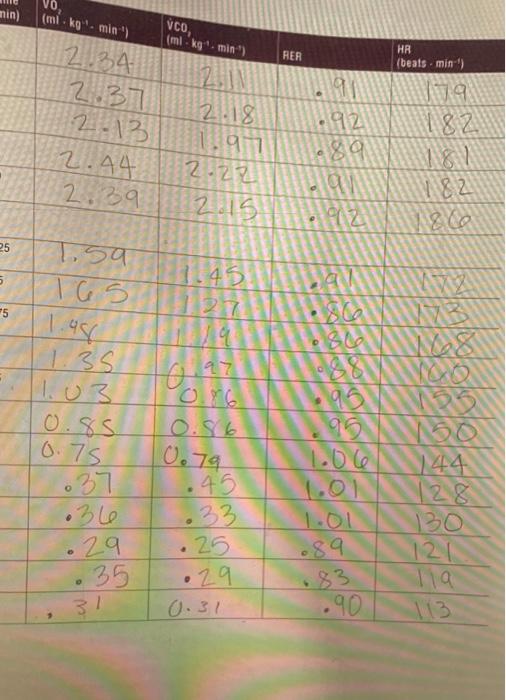 min) VO2 (ml · kg⁻¹ · min⁻¹) VCO2 (ml · kg⁻¹ · min⁻¹) RER HR (beats · min⁻¹)
2.34 2.11 .91 179
2.37 2.18 .92 182
2.13 1.97 .89 181
2.44 2.22 .91 182
2.39 2.15 .92 186
25 1.59 1.45 .91 172
5 165 1.27 .86 173
75 1.48 1.19 .86 168
1.35 0.97 .88 160
1.03 0.86 .95 155
0.85 0.86 .95 150
0.75 0.79 1.06 144
.37 .45 1.01 128
.36 .33 1.01 130
.29 .25 .89 121
.35 .29 .83 119
.31 0.31 .90 113